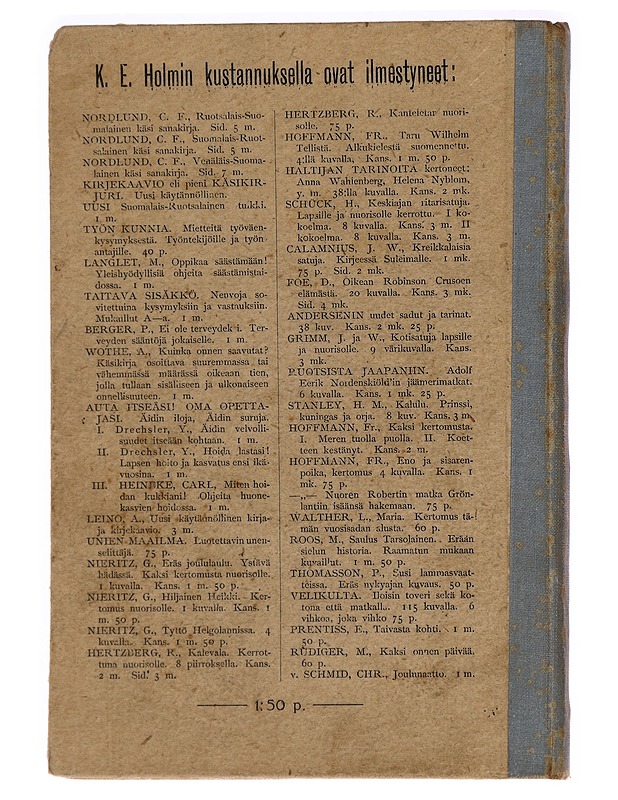 K. E. Holmin kustannuksella ovat ilmestyneet:
NORDLUND, C. F., Ruotsalais-Suo-
malainen käsi sanakirja. Sid. 5 m.
NORDLUND, C. F., Suomalais-Ruot-
salainen käsi sanakirja. Sid. 5 m.
NORDLUND, C. F., Venäläis-Suoma-
lainen käsi sanakirja. Sid. 7 m.
KIRJEKAAVIO eli pieni KÄSIKIR-
JURI. Uusi käytännöllinen.
UUSI Suomalais-Ruotsalainen tulkki.
1 m.
TYÖN KUNNIA. Mietteitä työväen-
kysymyksestä. Työntekijöille ja työn-
antajille. 40 p.
LANGLET, M., Oppikaa säästämään!
Yleishyödyllisiä ohjeita säästämistai-
dossa. 1 m.
TAITAVA SISÄKKÖ. Neuvoja so-
vitettuina kysymyksiin ja vastauksiin.
Mukaillut A—a. 1 m.
BERGER, P., Ei ole terveydeksi. Ter-
veyden sääntöjä jokaiselle. 1 m.
WOTHE, A., Kuinka onnen saavutat?
Käsikirja osoittava suuremmassa tai
vähemmässä määrässä oikean tien,
jolla tullaan sisälliseen ja ulkonaiseen
onnellisuuteen. 1 m.
AUTA ITSEÄSI! OMA OPETTA-
JASI. Äidin iloja, Äidin suruja.
I. Drechsler, Y., Äidin velvolli-
suudet itseään kohtaan. 1 m.
II. Drechsler, Y., Hoida lastasi!
Lapsen hoito ja kasvatus ensi ikä-
vuosina. 1 m.
III. HEINEKE, CARL, Miten hoi-
dan kukkiani! Ohjeita huone-
kasvien hoidossa. 1 m.
LEINO, A., Uusi käytännöllinen kirja-
ja kirjekaavio. 3 m.
UNIEN MAAILMA. Luotettavin unen-
selittäjä. 75 p.
NIERITZ, G., Eräs joululaulu. Ystävä
hädässä. Kaksi kertomusta nuorisolle.
1 kuvalla. Kans. 1 m. 50 p.
NIERITZ, G., Hiljainen Heikki. Ker-
tomus nuorisolle. 1 kuvalla. Kans. 1
m. 50 p.
NIERITZ, G., Tyttö Helgolannissa. 4
kuvalla. Kans. 1 m. 50 p.
HERTZBERG, R., Kalevala. Kerrot-
tuna nuorisolle. 8 piirroksella. Kans.
2 m. Sid. 3 m.
HERTZBERG, R., Kanteletar nuori-
solle. 75 p.
HOFFMANN, FR., Taru Wilhelm
Tellistä. Alkukielestä suomennettu.
4:llä kuvalla, Kans. 1 m. 50 p.
HALTIJAN TARINOITA kertoneet:
Anna Wahlenberg, Helena Nyblom,
y. m. 38:lla kuvalla. Kans. 2 mk.
SCHÜCK, H., Keskiajan ritarisatuja.
Lapsille ja nuorisolle kerrottu. I ko-
koelma. 8 kuvalla. Kans. 3 m. II
kokoelma. 8 kuvalla. Kans. 3 m.
CALAMNIUS, J. W., Kreikkalaisia
satuja. Kirjeessä Suleimalle. 1 mk.
75 p. Sid. 2 mk.
FOE, D., Oikean Robinson Crusoen
elämästä. 20 kuvalla. Kans. 3 mk.
Sid. 4 mk.
ANDERSENIN uudet sadut ja tarinat.
38 kuv. Kans. 2 mk. 25 p.
GRIMM, J. ja W., Kotisatuja lapsille
ja nuorisolle. 9 värikuvalla. Kans.
3 mk.
RUOTSISTA JAAPANIIN. Adolf
Eerik Nordenskiöld'in jäämerimatkat.
6 kuvalla. Kans. 1 mk. 25 p.
STANLEY, H. M., Kalulu. Prinssi,
kuningas ja orja. 8 kuv. Kans. 3 m.
HOFFMANN, Fr., Kaksi kertomusta.
I. Meren tuolla puolla. II. Koet-
teen kestänyt. Kans. 2 m.
HOFFMANN, FR., Eno ja sisaren-
poika, kertomus 4 kuvalla. Kans. 1
mk. 75 p.
—„— Nuoren Robertin matka Grön-
lantiin isäänsä hakemaan. 75 p.
WALTHER, L., Maria. Kertomus tä-
män vuosisadan alusta. 60 p.
ROOS, M., Saulus Tarsolainen. Erään
sielun historia. Raamatun mukaan
kuvaillut. 1 m. 50 p.
THOMASSON, P., Susi lammasvaat-
teissa. Eräs nykyajan kuvaus. 50 p.
VELIKULTA. Iloisin toveri sekä ko-
tona että matkalla. 115 kuvalla. 6
vihkoa, joka vihko 75 p.
PRENTISS, E., Taivasta kohti. 1 m.
50 p.
RÜDIGER, M., Kaksi onnen päivää.
60 p.
v. SCHMID, CHR., Joulunaatto. 1 m.
1: 50 p.